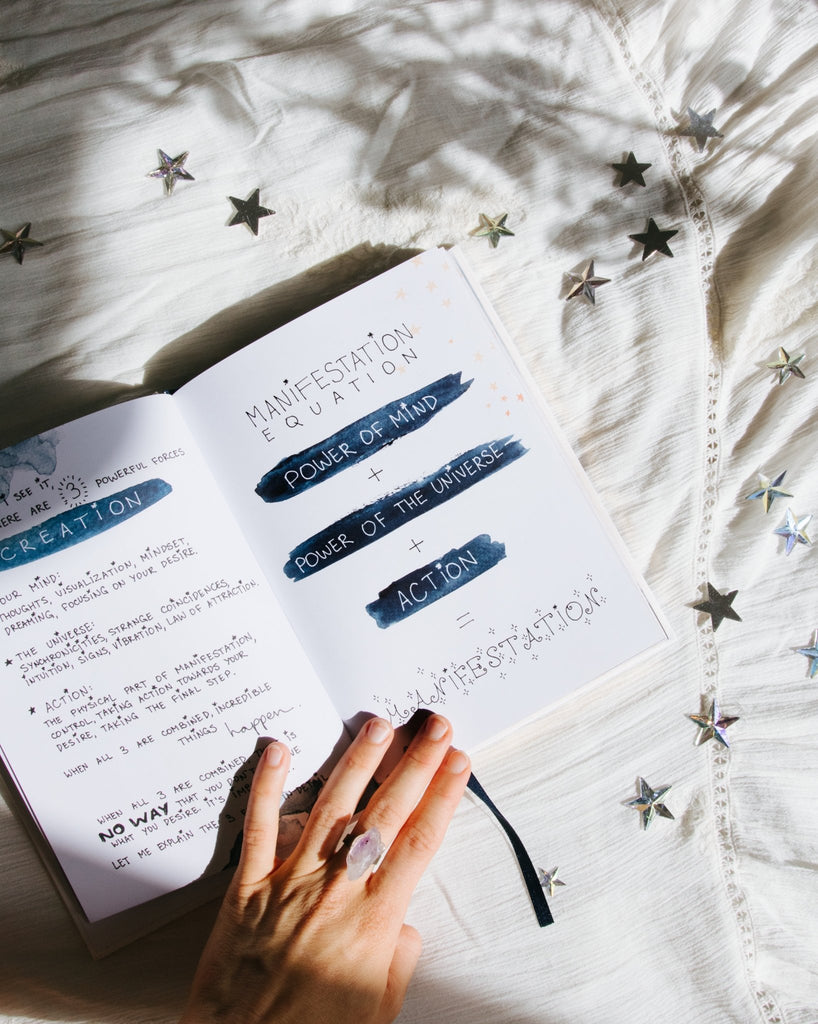 SEE IT,
ERE ARE 3 POWERFUL FORCES
CREATION
OUR MIND:
THOUGHTS, VISUALIZATION, MINDSET,
DREAMING, FOCUSING ON YOUR DESIRE.
★ THE UNIVERSE:
SYNCHRONICITIES, STRANGE COINCIDENCES,
INTUITION, SIGNS, VIBRATION, LAW OF ATTRACTION.
★ ACTION:
THE PHYSICAL PART OF MANIFESTATION,
CONTROL, TAKING ACTION TOWARDS YOUR
DESIRE, TAKING THE FINAL STEP.
WHEN ALL 3 ARE COMBINED, INCREDIBLE
THINGS happen.
WHEN ALL 3 ARE COMBINED IS
NO WAY THAT YOU DON'T
WHAT YOU DESIRE. IT'S
LET ME EXPLAIN THE 3 IN DETAIL
MANIFESTATION
EQUATION
POWER OF MIND
+
POWER OF THE UNIVERSE
+
ACTION
=
MANIFESTATION